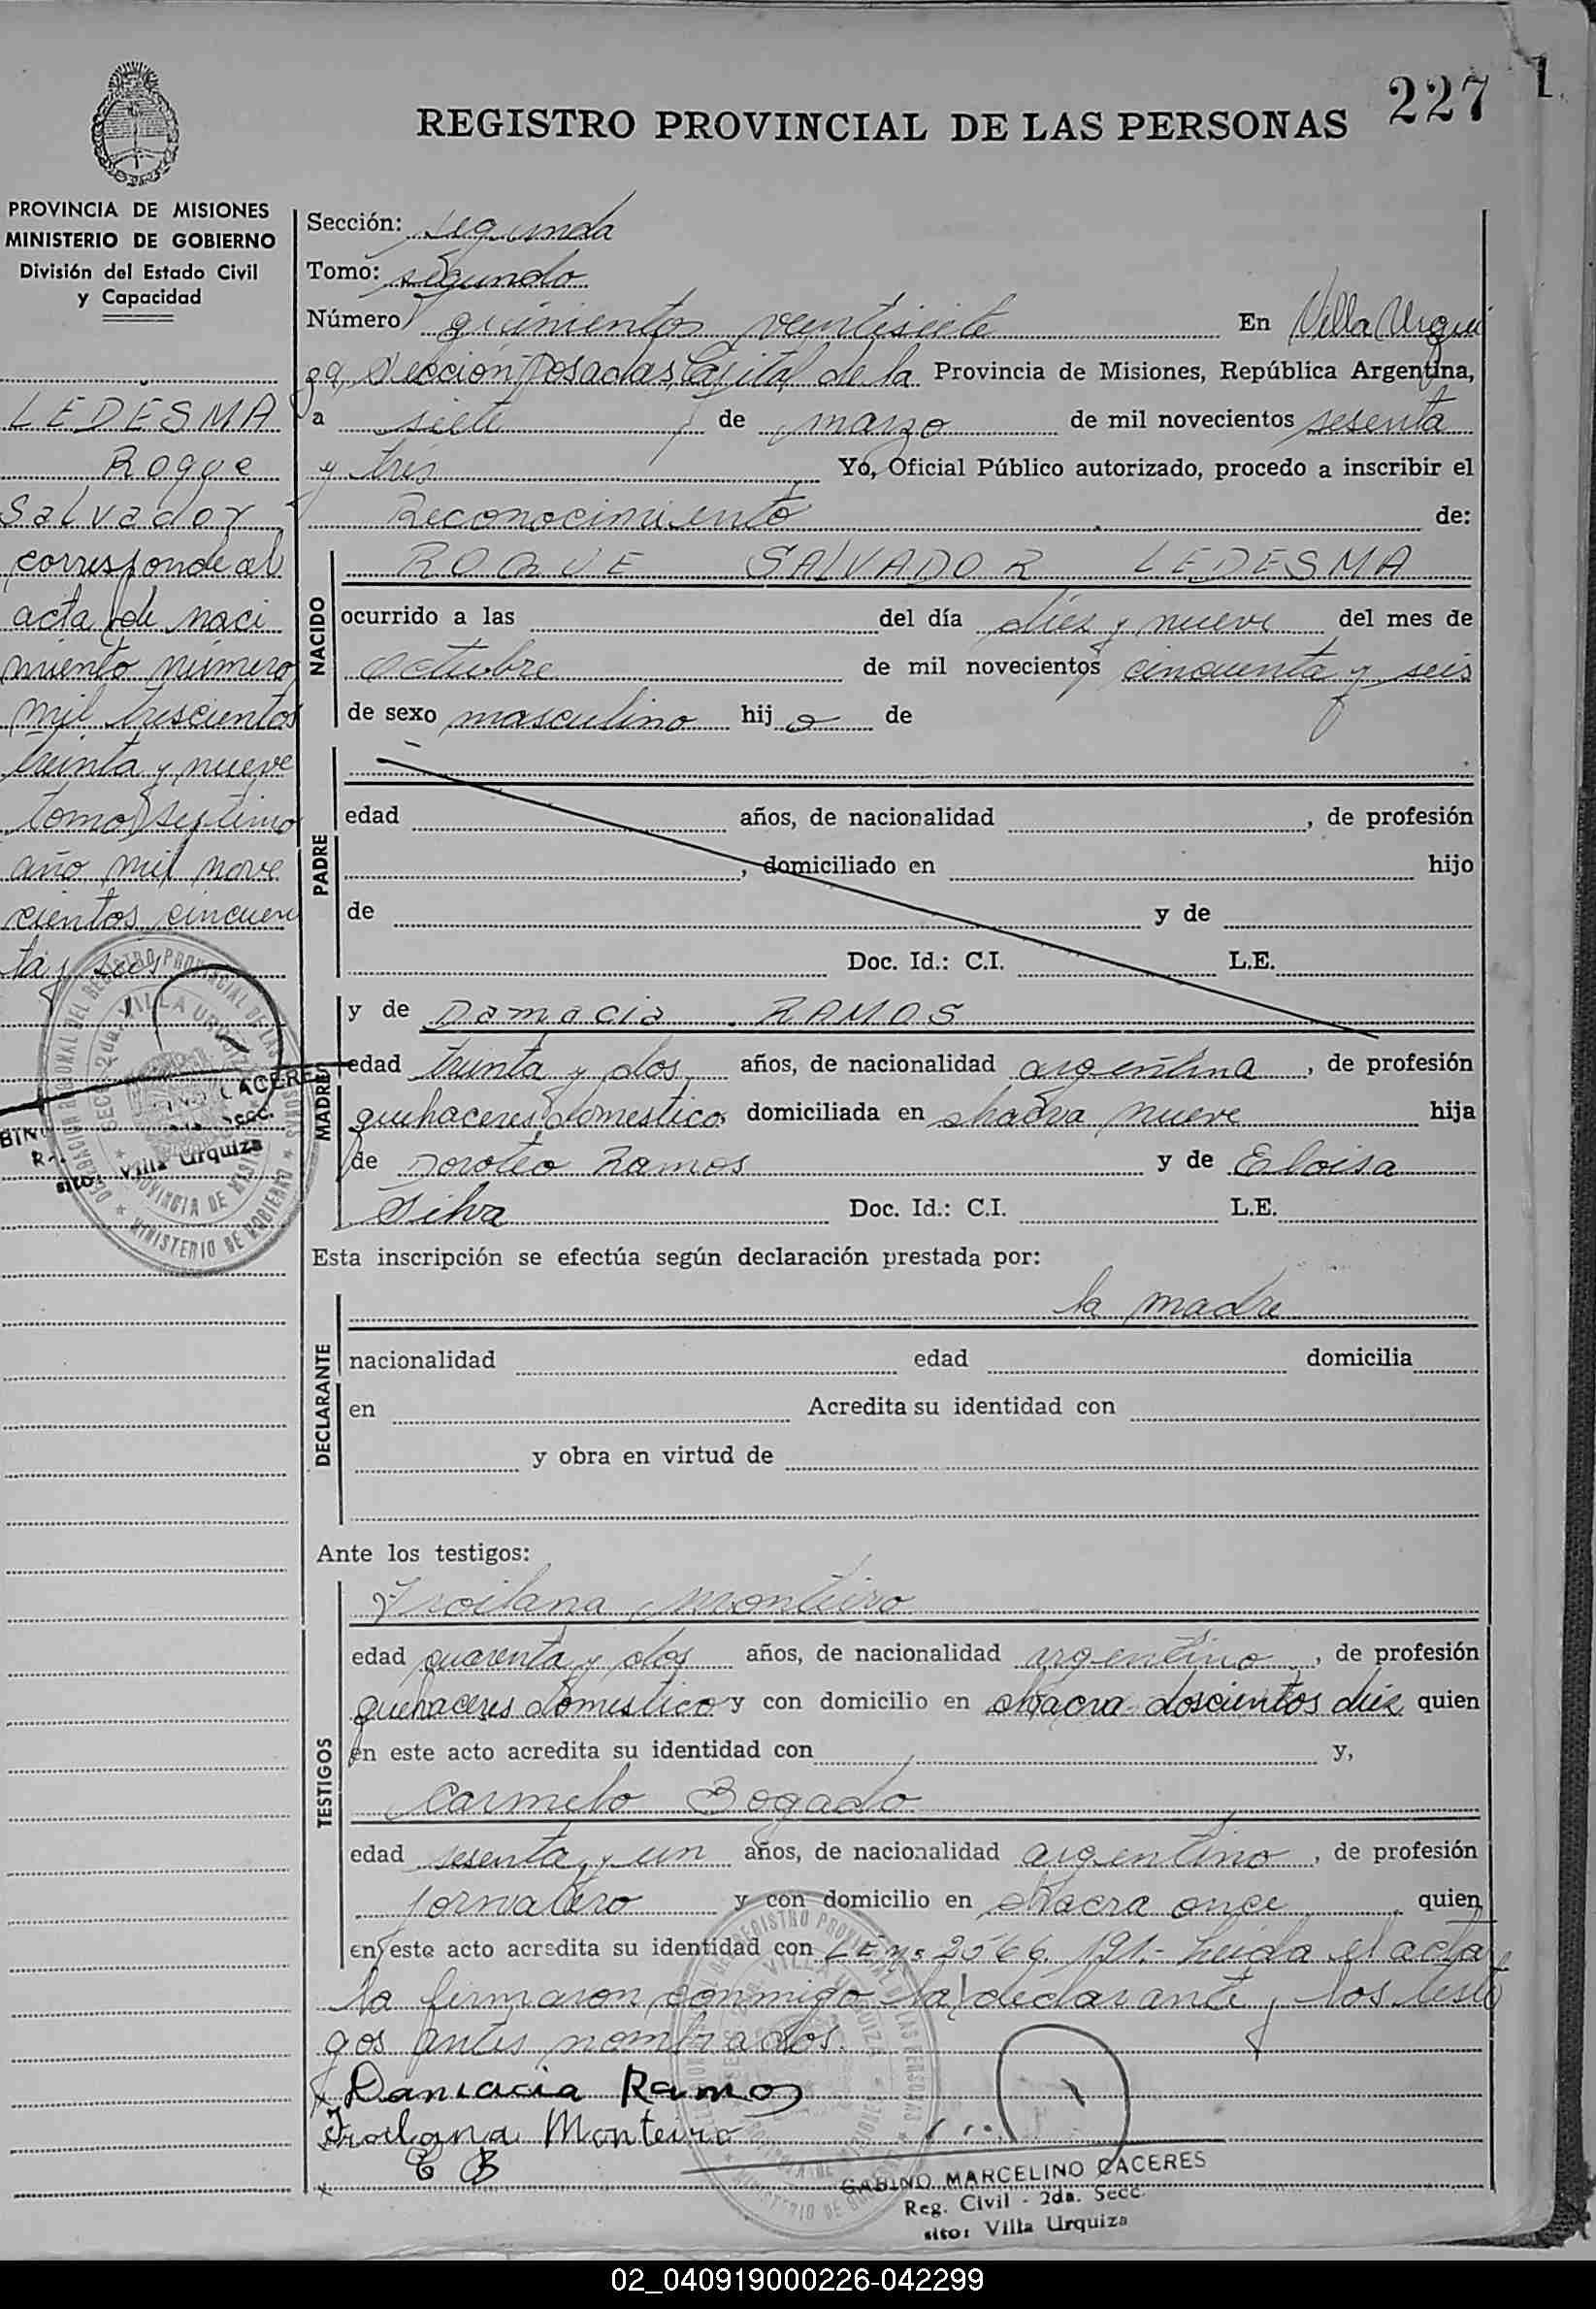 227
1.
REGISTRO PROVINCIAL DE LAS PERSONAS
PROVINCIA DE MISIONES
MINISTERIO DE GOBIERNO
División del Estado Civil
y Capacidad
LEDESMA
Roque
Salvador
corresponde al
acta de naci
miento número
mil trescientos
treinta y nueve
tomo septimo
año mil nove
cientos cincuen
ta y seis
DELEGACION REGIONAL DEL REGISTRO PROVINCIAL DE LAS PERSONAS
SECC. 2da. VILLA URQUIZA
PROVINCIA DE MISIONES
MINISTERIO DE GOBIERNO
CACERES
Secc.
sito: Villa Urquiza
Sección: segunda
Tomo: segundo
Número quinientos veintisiete En Villa Urqui
za Sección Posadas, Capital de la Provincia de Misiones, República Argentina,
a siete de marzo de mil novecientos sesenta
y tres Yo, Oficial Público autorizado, procedo a inscribir el
Reconocimiento de:
NACIDO
ROQUE SALVADOR LEDESMA
ocurrido a las del día diez y nueve del mes de
octubre de mil novecientos cincuenta y seis
de sexo masculino hijo de
PADRE
edad años, de nacionalidad , de profesión
, domiciliado en hijo
de y de
Doc. Id.: C.I. L.E.
MADRE
y de Damacia RAMOS
edad trinta y dos años, de nacionalidad argentina, de profesión
quehaceres domestico, domiciliada en chacra nueve hija
de Doroteo Ramos y de Eloisa
Silva Doc. Id.: C.I. L.E.
Esta inscripción se efectúa según declaración prestada por:
DECLARANTE
la madre
nacionalidad edad domicilia
en Acredita su identidad con
y obra en virtud de
Ante los testigos:
TESTIGOS
Froilana Monteiro
edad cuarenta y dos años, de nacionalidad argentino, de profesión
quehaceres domestico y con domicilio en chacra doscientos diez quien
en este acto acredita su identidad con y,
Carmelo Bogado
edad sesenta y un años, de nacionalidad argentino, de profesión
jornalero y con domicilio en chacra once quien
en este acto acredita su identidad con L.E. nº 2566.191.- Leida el acta
la firmaron conmigo la declarante y los testi
gos antes nombrados.
Damacia Ramos
Froilana Monteiro
C B
GABINO MARCELINO CACERES
Reg. Civil - 2da. Secc.
sito: Villa Urquiza
02_040919000226-042299